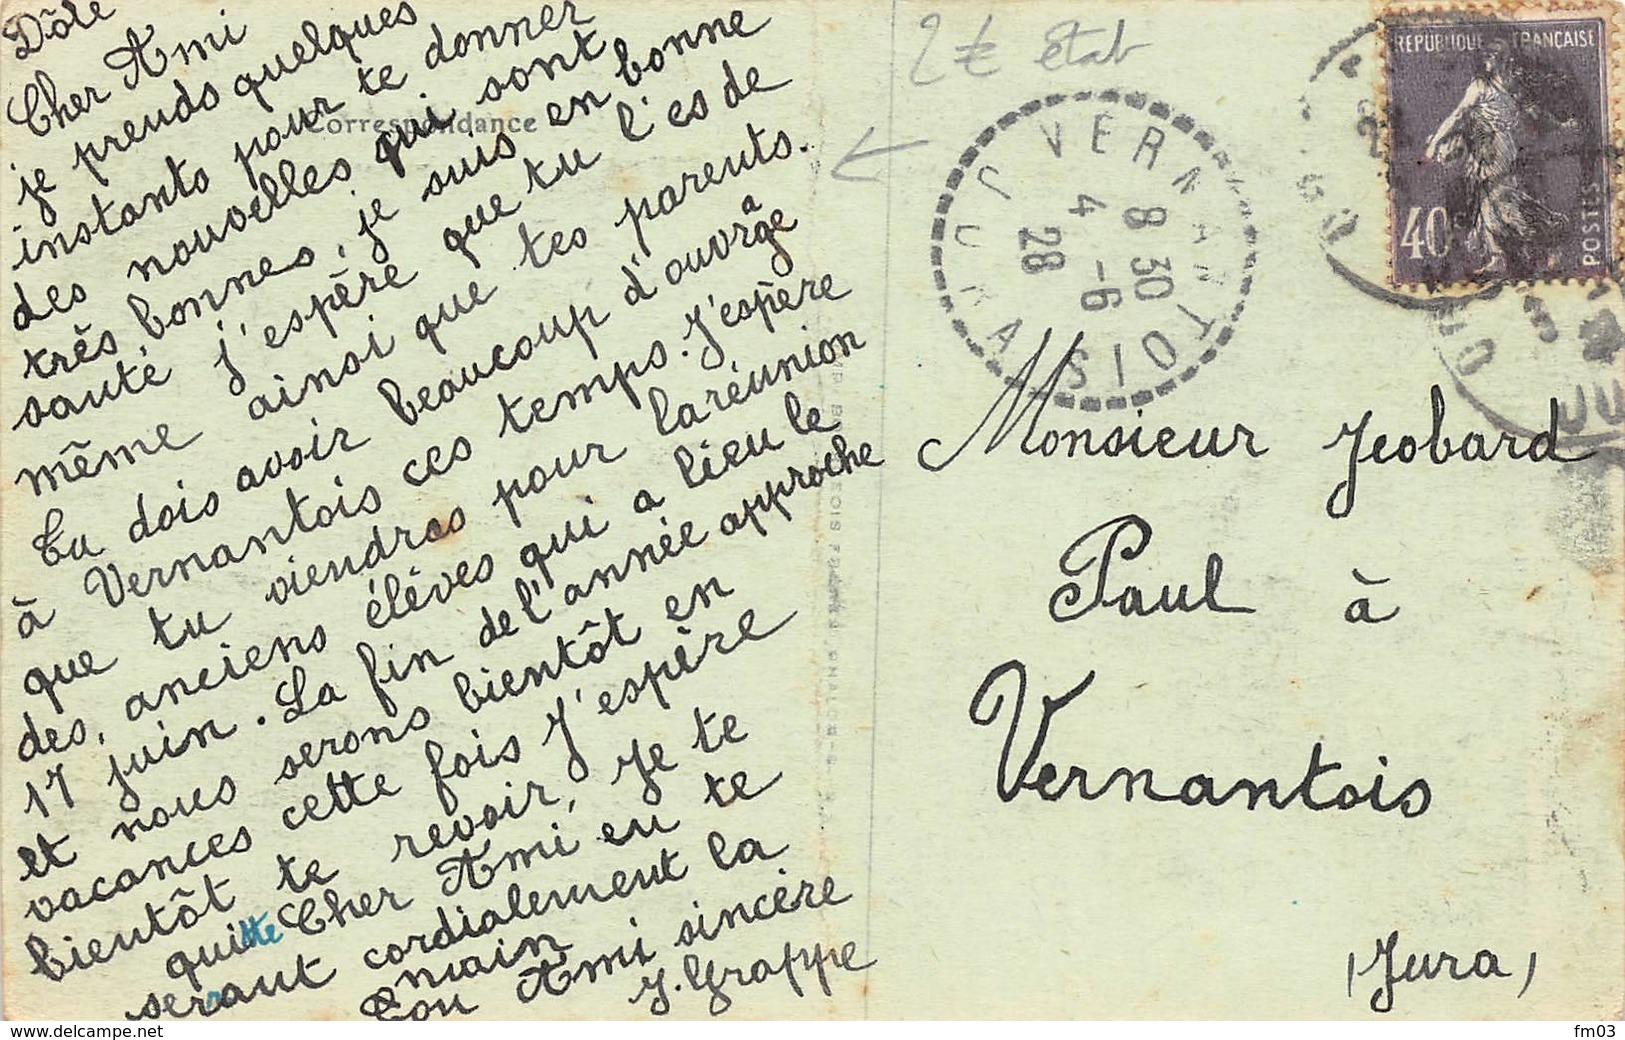 Dôle
Cher Ami
je prends quelques
instants pour te donner
des nouvelles qui sont
très bonnes, je suis en bonne
santé j'espère que tu l'es de
même ainsi que tes parents.
Tu dois avoir beaucoup d'ouvrâge
à Vernantois ces temps. J'espère
que tu viendras pour la réunion
des, anciens élèves qui a lieu le
17 juin. La fin de l'année approche
et nous serons bientôt en
vacances cette fois J'espère
bientôt te revoir, Je te
quitte Cher Ami en te
serrant cordialement la
main
Ton Ami sincère
J. Grappe
Correspondance
2€ étab
VERNANTOIS
JURA
8 30
4 -6
28
REPUBLIQUE FRANÇAISE
40
POSTES
JU
Monsieur Jeobard
Paul à
Vernantois
(Jura)
www.delcampe.net
fm03